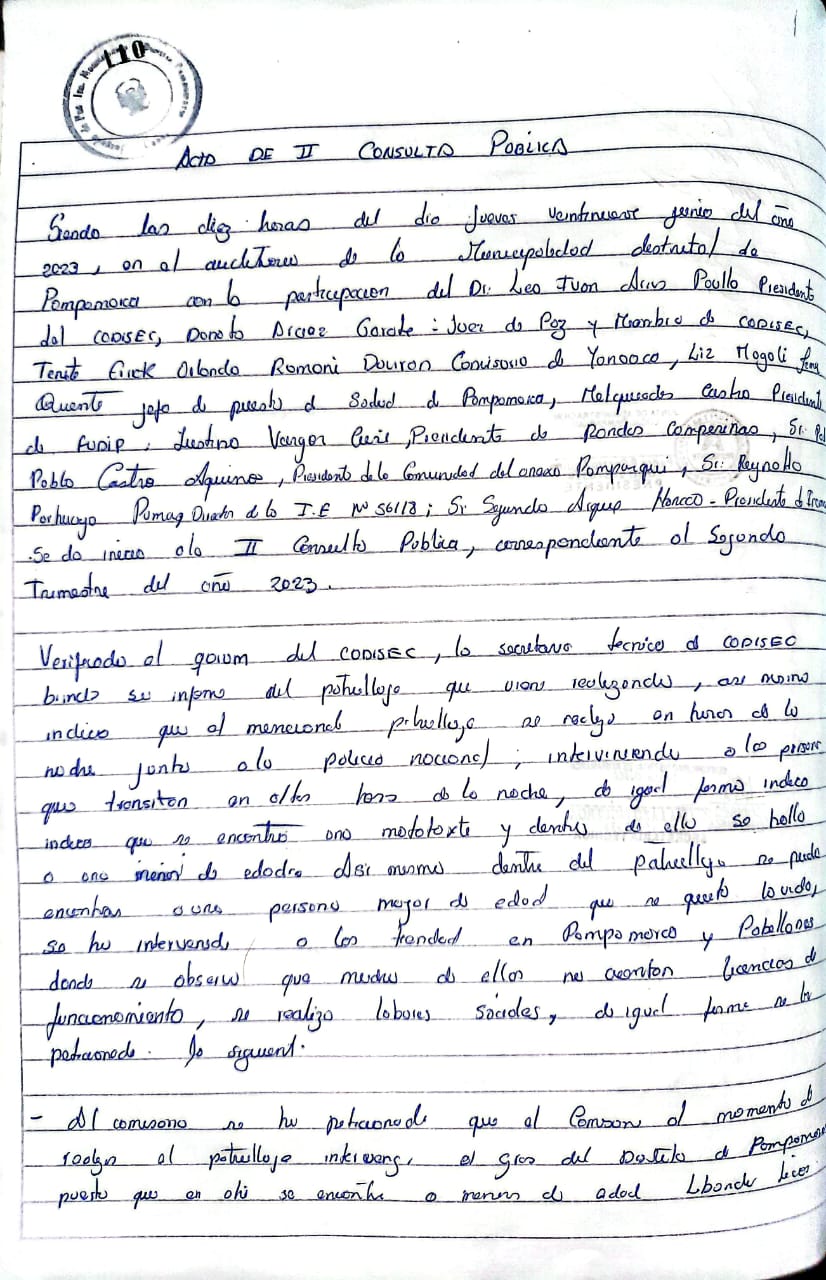 110
ACTA DE II CONSULTA PÚBLICA
Siendo las diez horas del día Jueves veintinueve junio del año
2023, en el auditorio de la Municipalidad distrital de
Pampamarca con la participacion del Dr. Leo Juan Presidente
del CODISEC, Donato Garate: Juez de Paz y Miembro de CODISEC,
Tente Erick Orlando Romani Comisario de Yanaoca, Liz Magali
Quente jefa de puesto d Salud de Pampamarca, Melquiades Castro Presidente
de FUDIP, Vargas, Presidente de Rondas Campesinas, Sr.
Pablo Castro Aquino, Presidente de la Comunidad del anexo Pamparqui, Sr. Reynaldo
Pumaq Director d la I.E Nº 56118; Sr Segundo Hancco - Presidente d
Se da inicio a la II Consulta Pública, correspondiente al Segundo
Trimestre del año 2023.
Verificado el qorum del CODISEC, la secretaria tecnico d CODISEC
brinda su informe del patrullaje que viene realizando, asi mismo
indico que el mencionado patrullaje se realiza en horas de la
noche junto a la policia nacional; interviniendo a las persona
que transitan en altas horas de la noche, de igual forma indico
indico que se encontró una mototaxte y dentro de ella se hallo
a una menor de edad. Asi mismo dentro del patrullaje se pudo
encontrar a una persona mayor de edad que se quitó la vida,
se ha intervenido a las tiendas en Pampamarca y Pabellones
donde se observo que muchos de ellos no cuentan licencias de
funcionamiento, se realizo labores sociales, de igual forma se ha
peticionado. lo siguient.
- Al comisario se ha peticionado que el Comisario al momento de
realizar el patrullaje intervenga el Gras del Distrito d Pampamarca
puesto que en ahi se encontra a menores de edad